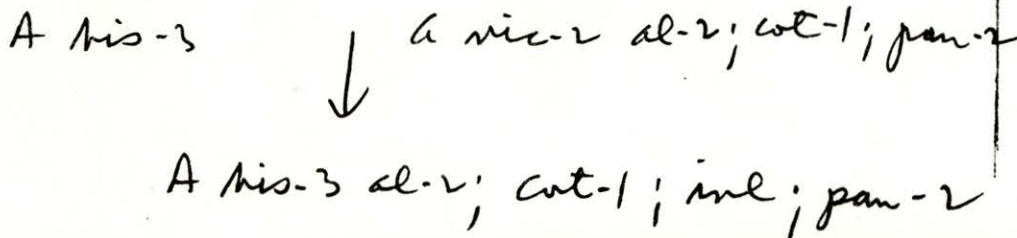 A his-3 ↓ a nic-2 al-2; cot-1; pan-2
A his-3 al-2; cot-1; inl; pan-2